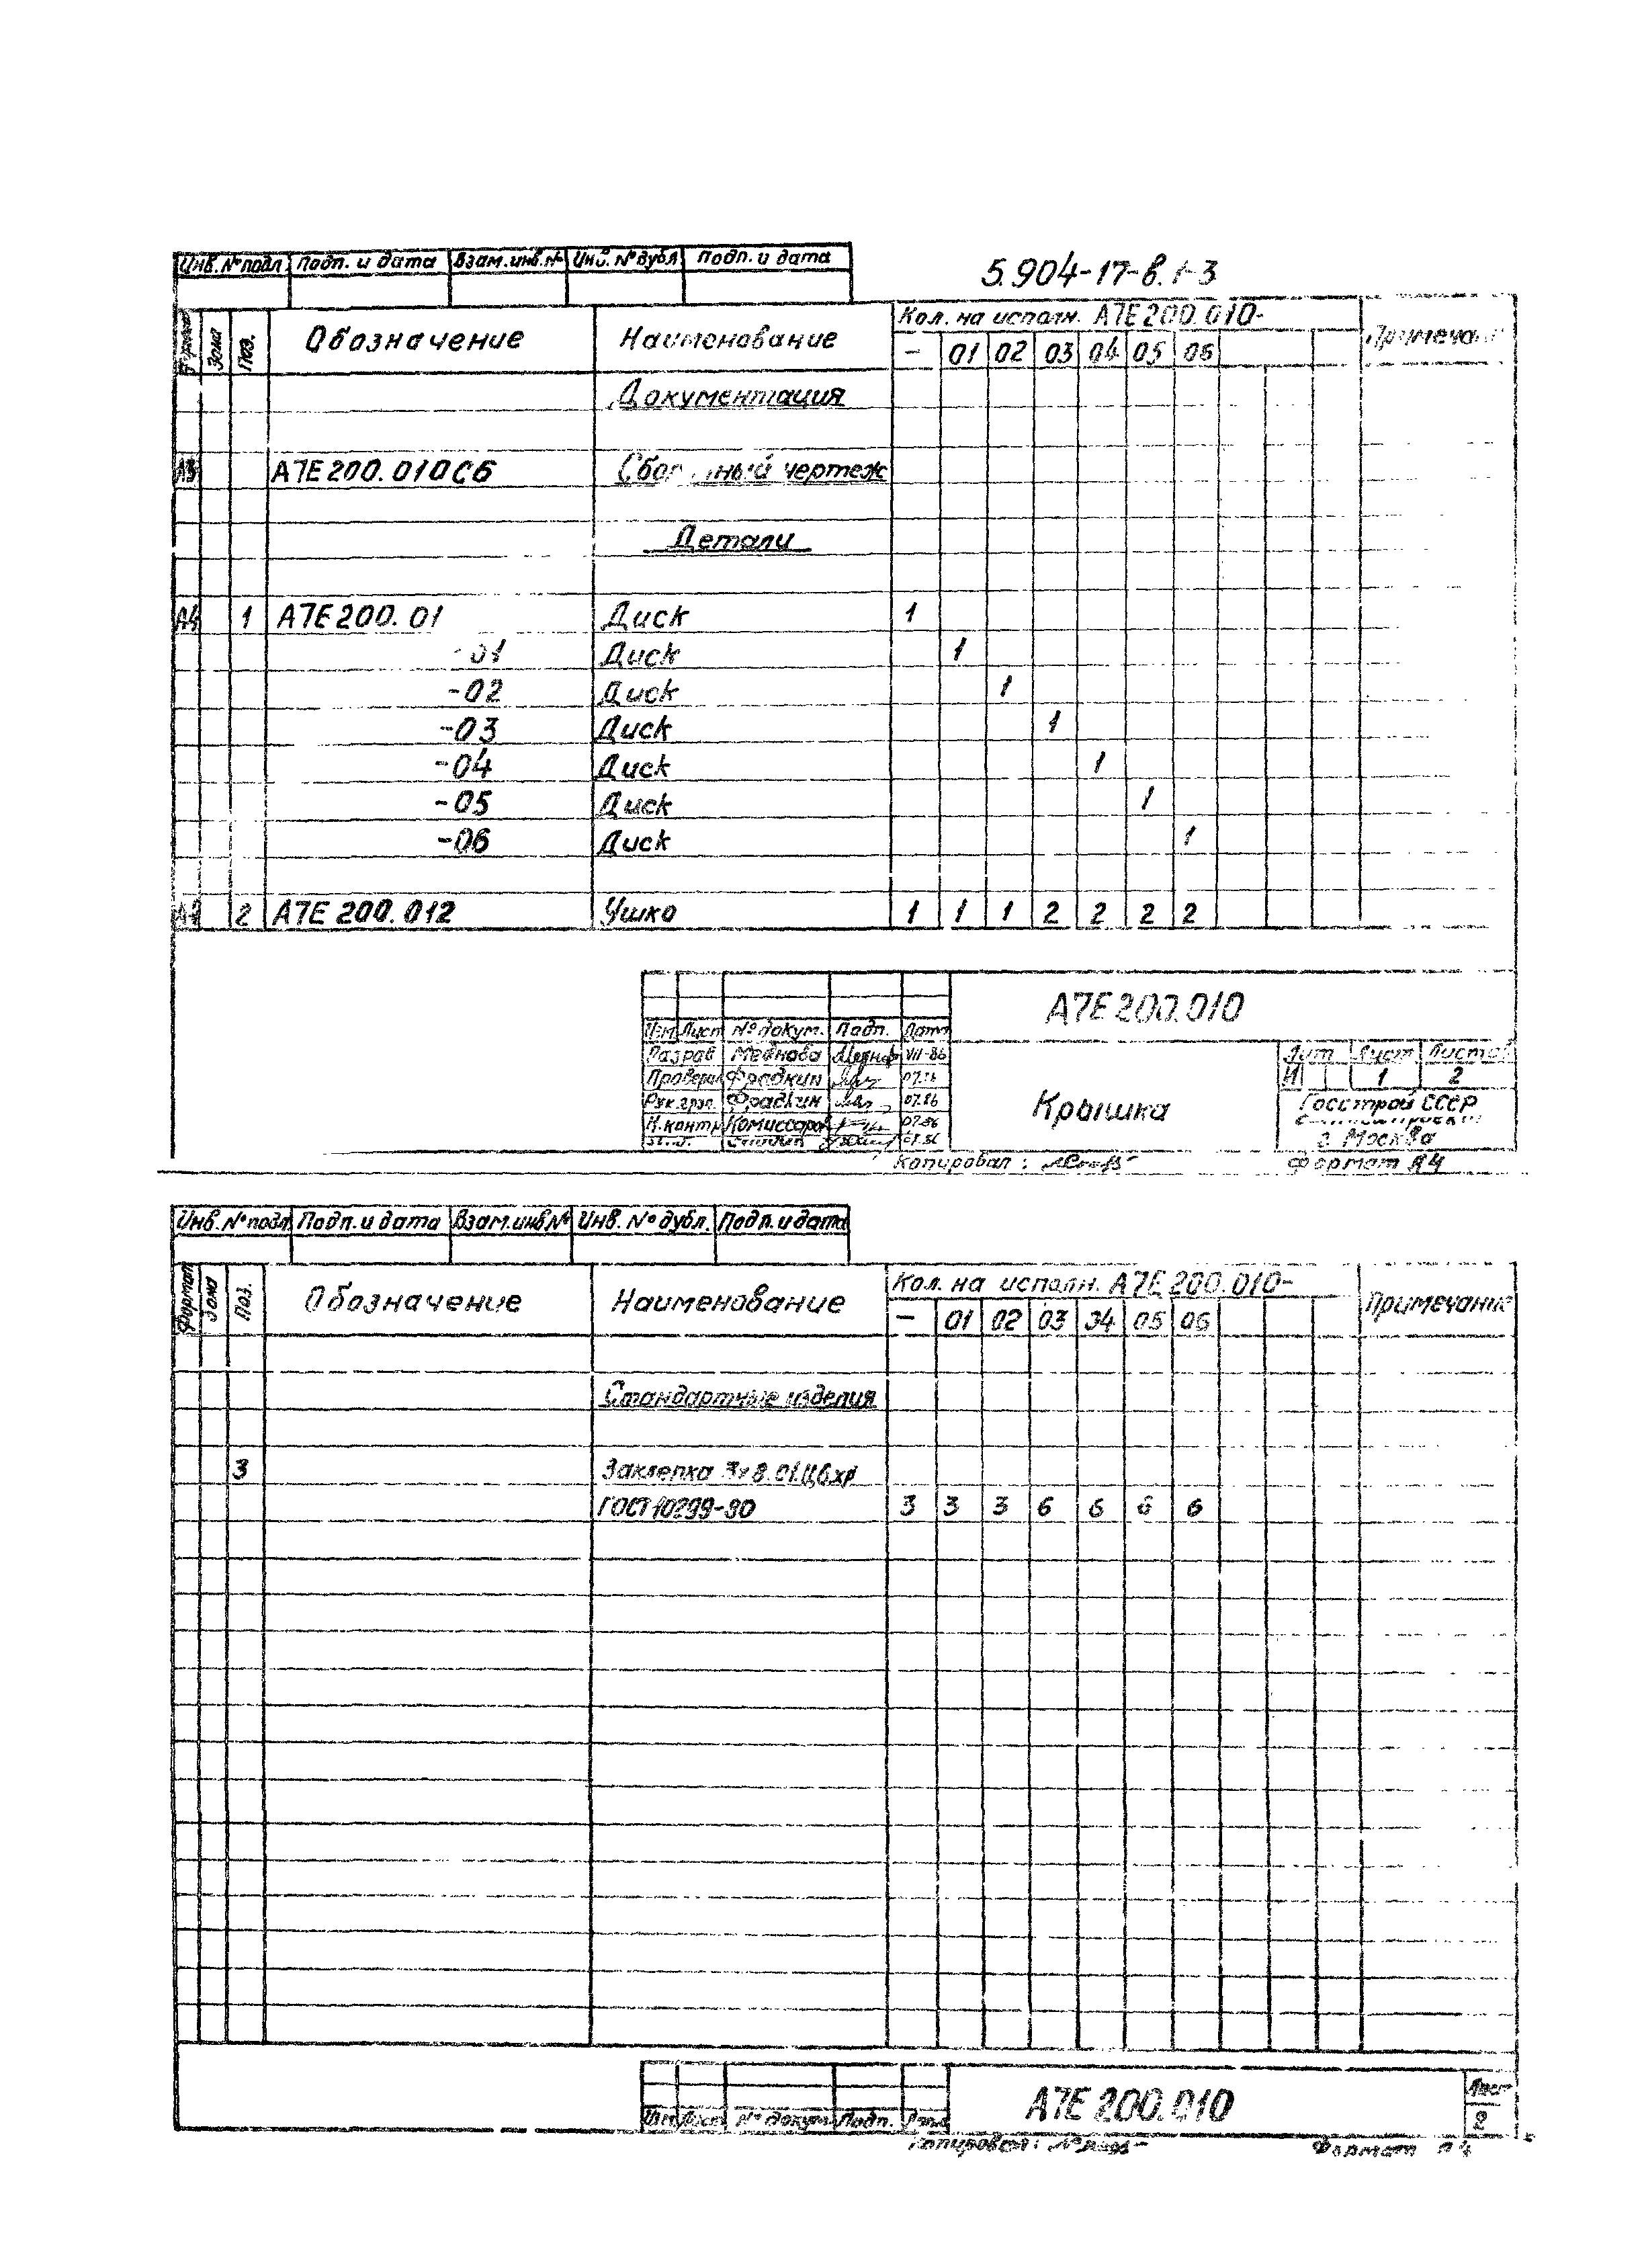 Инв. № подл. Подп. и дата Взам. инв. № Инв. № дубл. Подп. и дата
5.904-17-в.1-3
Формат Зона Поз. Обозначение Наименование Кол. на исполн. А7Е200.010- Примечан
– 01 02 03 04 05 06
Документация
А3 А7Е200.010СБ чертеж
Детали
А4 1 А7Е200.01 Диск 1
-01 Диск 1
-02 Диск 1
-03 Диск 1
-04 Диск 1
-05 Диск 1
-06 Диск 1
2 А7Е 200.012 Ушко 1 1 1 2 2 2 2
А7Е200.010
Изм Лист № докум. Подп. Дата
Разраб Меднова VII-86
Лит Лист Листов
Проверил Фрадкин
И 1 2
Рук. груп. Фрадкин 07.86
Крышка
Госстрой СССР
Н.контр Комиссаров 07.86
г. Москва
Копировал: Формат А4
Инв. № подл Подп. и дата Взам. инв № Инв. № дубл. Подп. и дата
Формат Зона Поз. Обозначение Наименование Кол. на исполн. А7Е200.010- Примечание
– 01 02 03 04 05 06
Стандартные изделия
3 Заклепка 3х8.01.Ц6хр
ГОСТ 10299-80 3 3 3 6 6 6 6
А7Е 200.010
Лист
Изм Лист № докум. Подп. Дата
2
Копировал: Формат А4